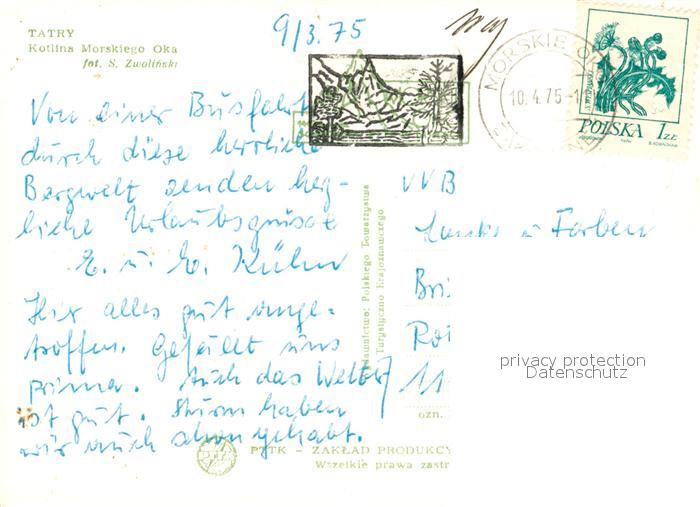 TATRY
Kotlina Morskiego Oka
fot. S. Zwoliński
9/3.75
MORSKIE O
10.4.75-1
POLSKA 1 ZŁ
Von einer Busfahrt
durch diese herrliche
Bergwelt senden herz-
liche Urlaubsgrüsse
E. u. E. Kühn
Hier alles gut ange-
troffen. Gefällt uns
prima. Auch das Wetter
ist gut. Sturm haben
wir auch schon gehabt.
Wydawnictwo: Polskiego Towarzystwa
Turystyczno Krajoznawczego
VVB
Lacke u Farben
11
ozn.
PTTK – ZAKŁAD PRODUKCY
Wszelkie prawa zastr
privacy protection
Datenschutz